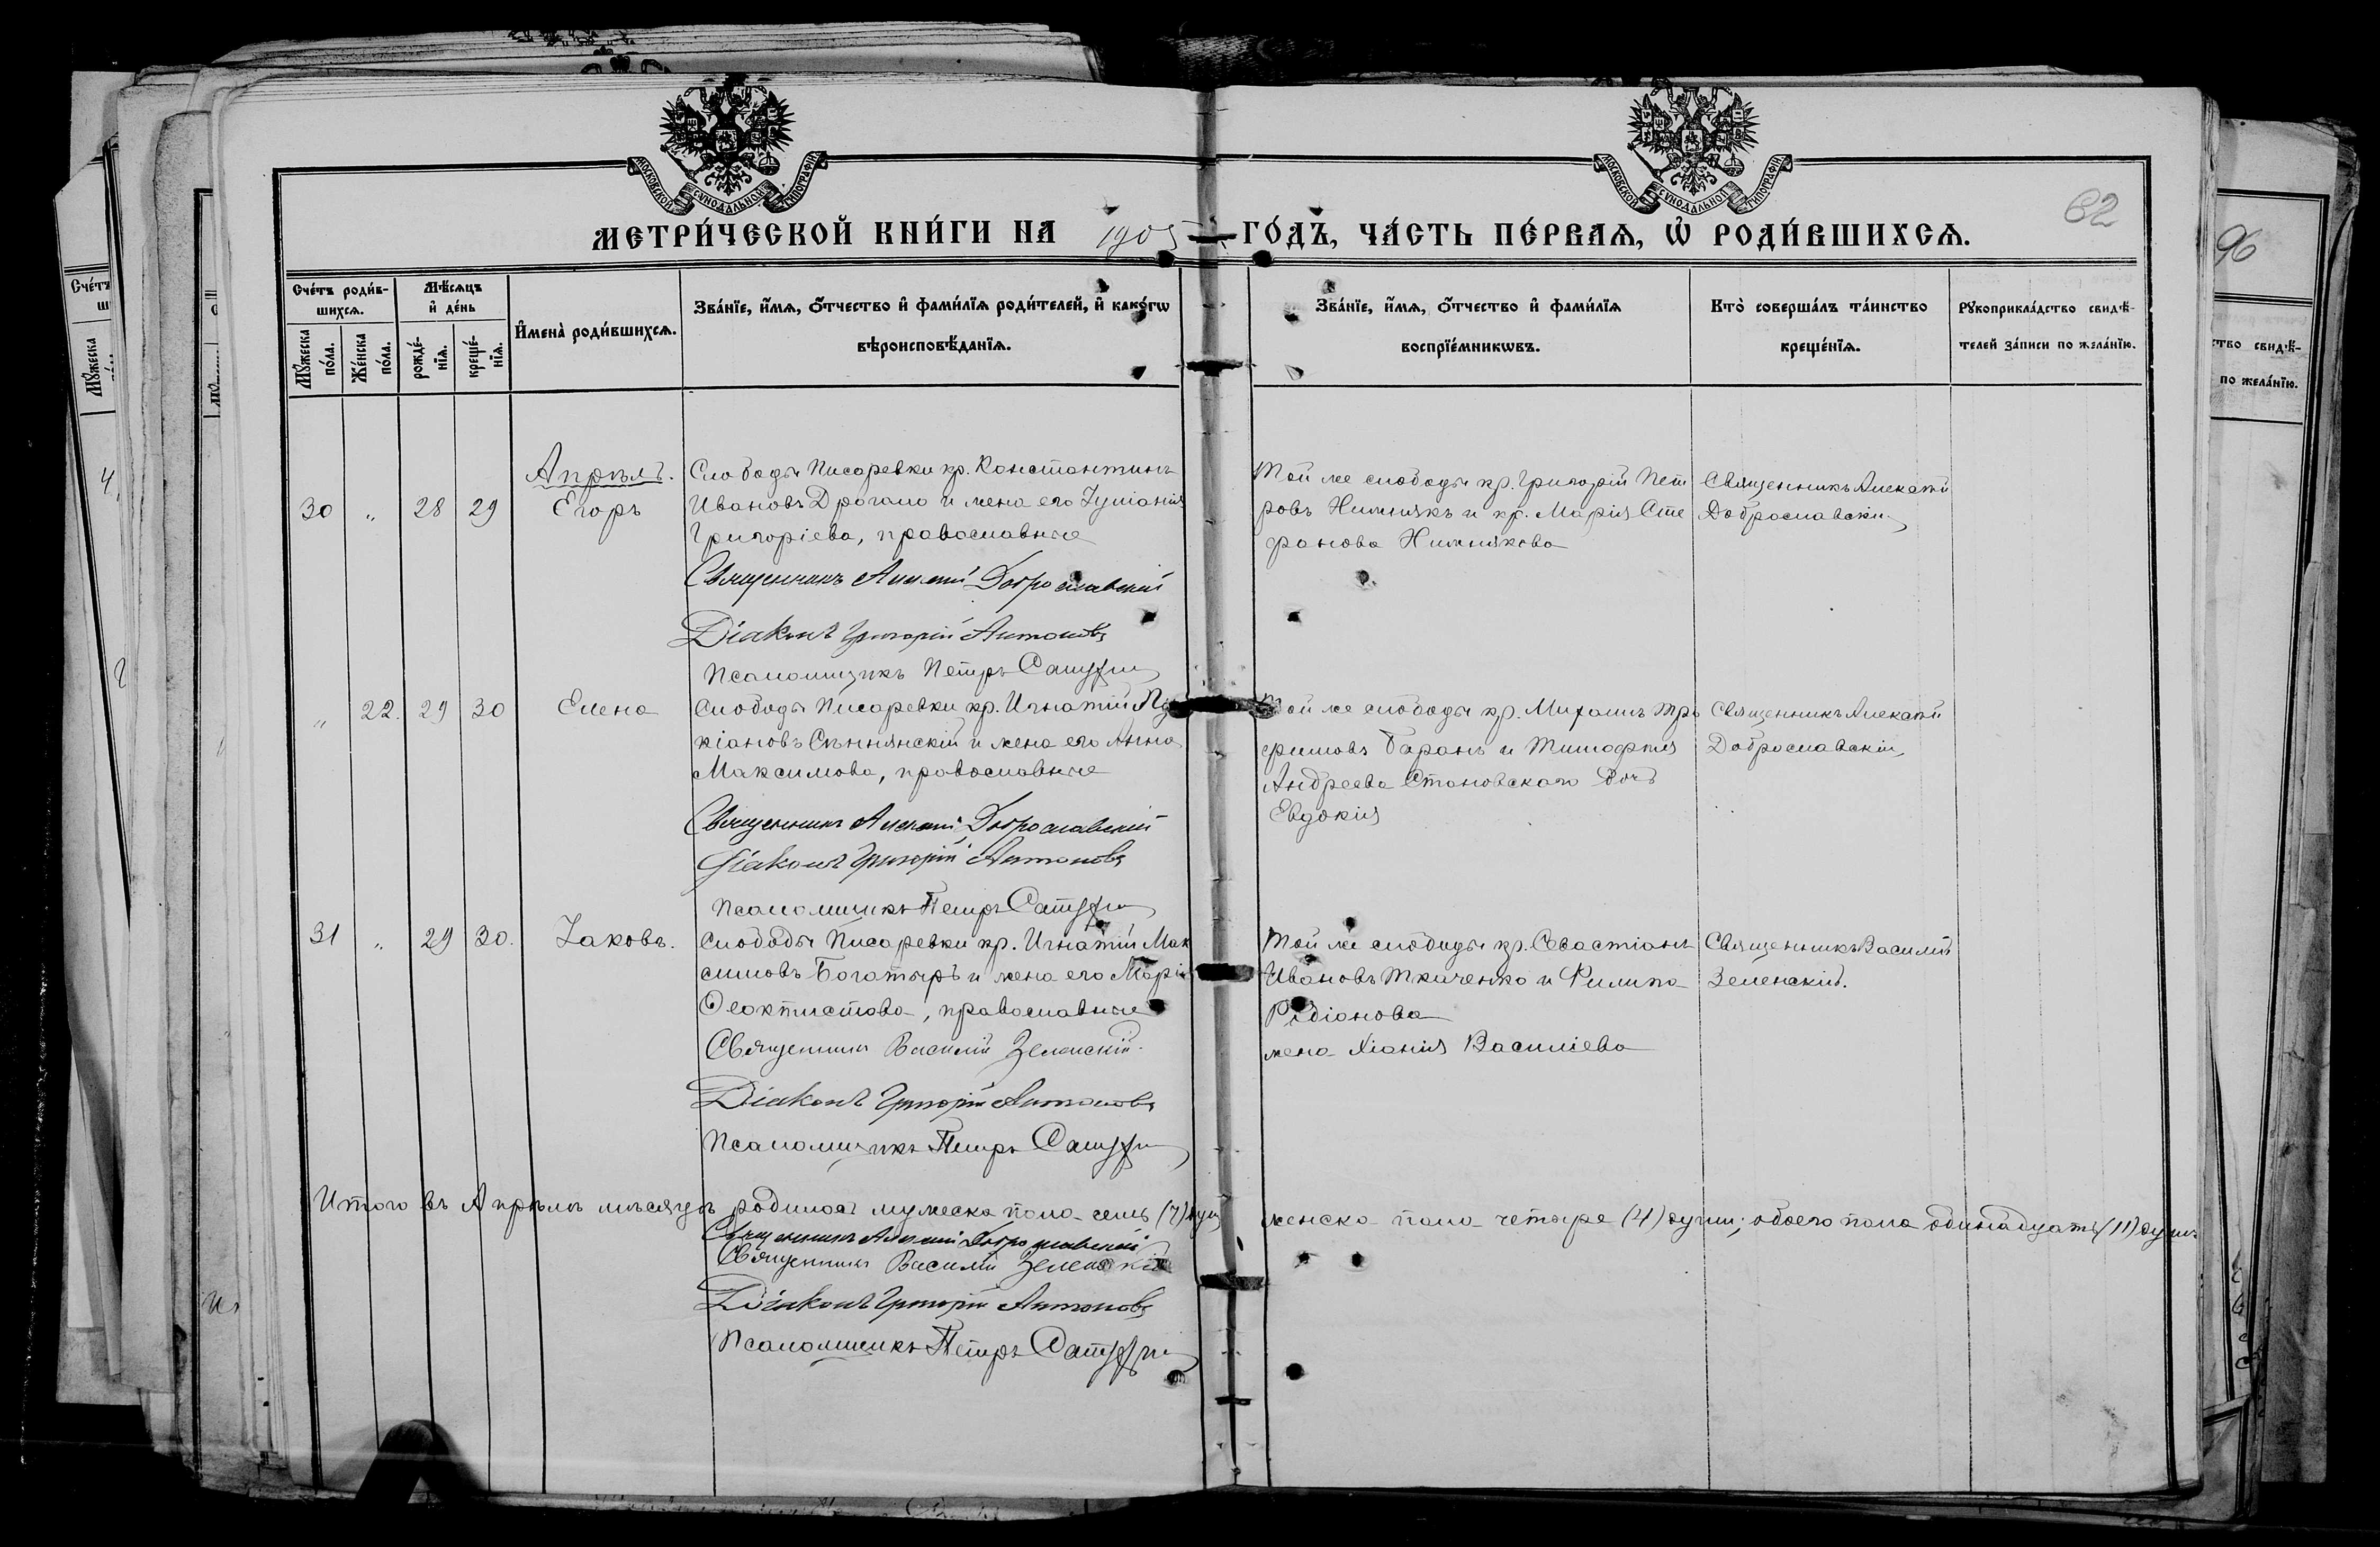 МОСКОВСКОЙ СѴНОДАЛЬНОЙ ТИПОГРАФІИ
МОСКОВСКОЙ СѴНОДАЛЬНОЙ ТИПОГРАФІИ
62
МЕТРИ́ЧЕСКОЙ КНИ́ГИ НА 1905 ГО́ДЪ, ЧА́СТЬ ПЕ́РВАЯ, Ѡ РОДИ́ВШИХСЯ.
Сче́тъ роди́в-
шихся.
Мꙋ́жеска по́ла.
Же́нска по́ла.
Мѣ́сяцъ
и҆ де́нь
рожде́-нїя.
креще́-нїя.
И҆мена̀ роди́вшихся.
Зва́нїе, и҆́мя, ѻ҆́тчество и҆ фами́лїя роди́телей, и҆ како́гѡ
вѣроисповѣ́данїя.
Зва́нїе, и҆́мя, ѻ҆́тчество и҆ фами́лїя
воспрїе́мникѡвъ.
Кто̀ соверша́лъ та́инство
креще́нїя.
Рꙋкоприкла́дство свидѣ́-
телей за́писи по жела́нїю.
Апрѣль.
30 " 28 29 Егоръ
Слободы Писаревки кр. Константинъ
Ивановъ Дрогано и жена его Іуліанія
Григоріева, православные
Священникъ Алексій Доброславскій
Діаконъ Григорій Антоновъ
Псаломщикъ Петръ
Той же слободы кр. Григорій Пет
ровъ Нижникъ и кр. Марія Сте
фанова Нижнякова
Священникъ Алексій
Доброславскій
" 22. 29 30 Елена
Слободы Писаревки кр. Игнатій
кіановъ Сѣннянскій и жена его Анна
Максимова, православные
Священникъ Алексій Доброславскій
Діаконъ Григорій Антоновъ
Псаломщикъ Петръ
Той же слободы кр. Михаилъ Тро
фимовъ Баранъ и Тимофея
Андреева Становскаго дочь
Евдокія
Священникъ Алексій
Доброславскій
31 " 29 30. Іаковъ.
Слободы Писаревки кр. Игнатій Мак
симовъ Богатырь и жена его Марія
Феоктистова, православные
Священникъ Василій Зеленскій.
Діаконъ Григорій Антоновъ
Псаломщикъ Петръ
Той же слободы кр. Севастіанъ
Ивановъ Ткаченко и Филипа
Родіонова
жена Хіонія Василіева
Священникъ Василій
Зеленскій.
Итого въ Апрѣлѣ мѣсяцѣ родилось мужеска пола семь (7) душъ женска пола четыре (4) души; обоего пола одинадцать (11) душъ
Священникъ Алексій Доброславскій
Священникъ Василій Зеленскій
Діаконъ Григорій Антоновъ
Псаломщикъ Петръ
96